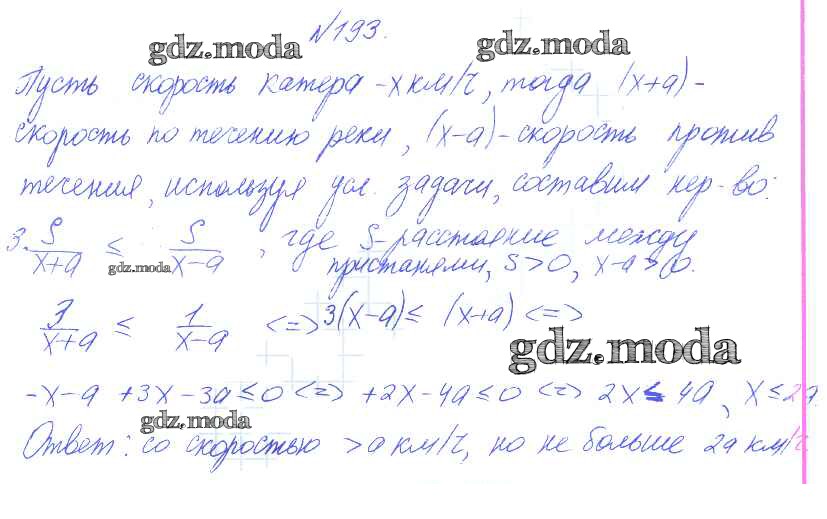 №193.
gdz.moda
gdz.moda
Пусть скорость катера - x км/ч, тогда (x+a) -
скорость по течению реки, (x-a) - скорость против
течения, используя усл. задачи, составим нер-во:
3. S/(x+a) ≤ S/(x-a), где S - расстояние между
пристанями, S>0, x-a>0.
gdz.moda
3/(x+a) ≤ 1/(x-a) <=> 3(x-a) ≤ (x+a) <=>
gdz.moda
-x-a+3x-3a≤0 <=> +2x-4a≤0 <=> 2x≤4a, x≤2a.
gdz.moda
Ответ: со скоростью >a км/ч, но не больше 2a км/ч.